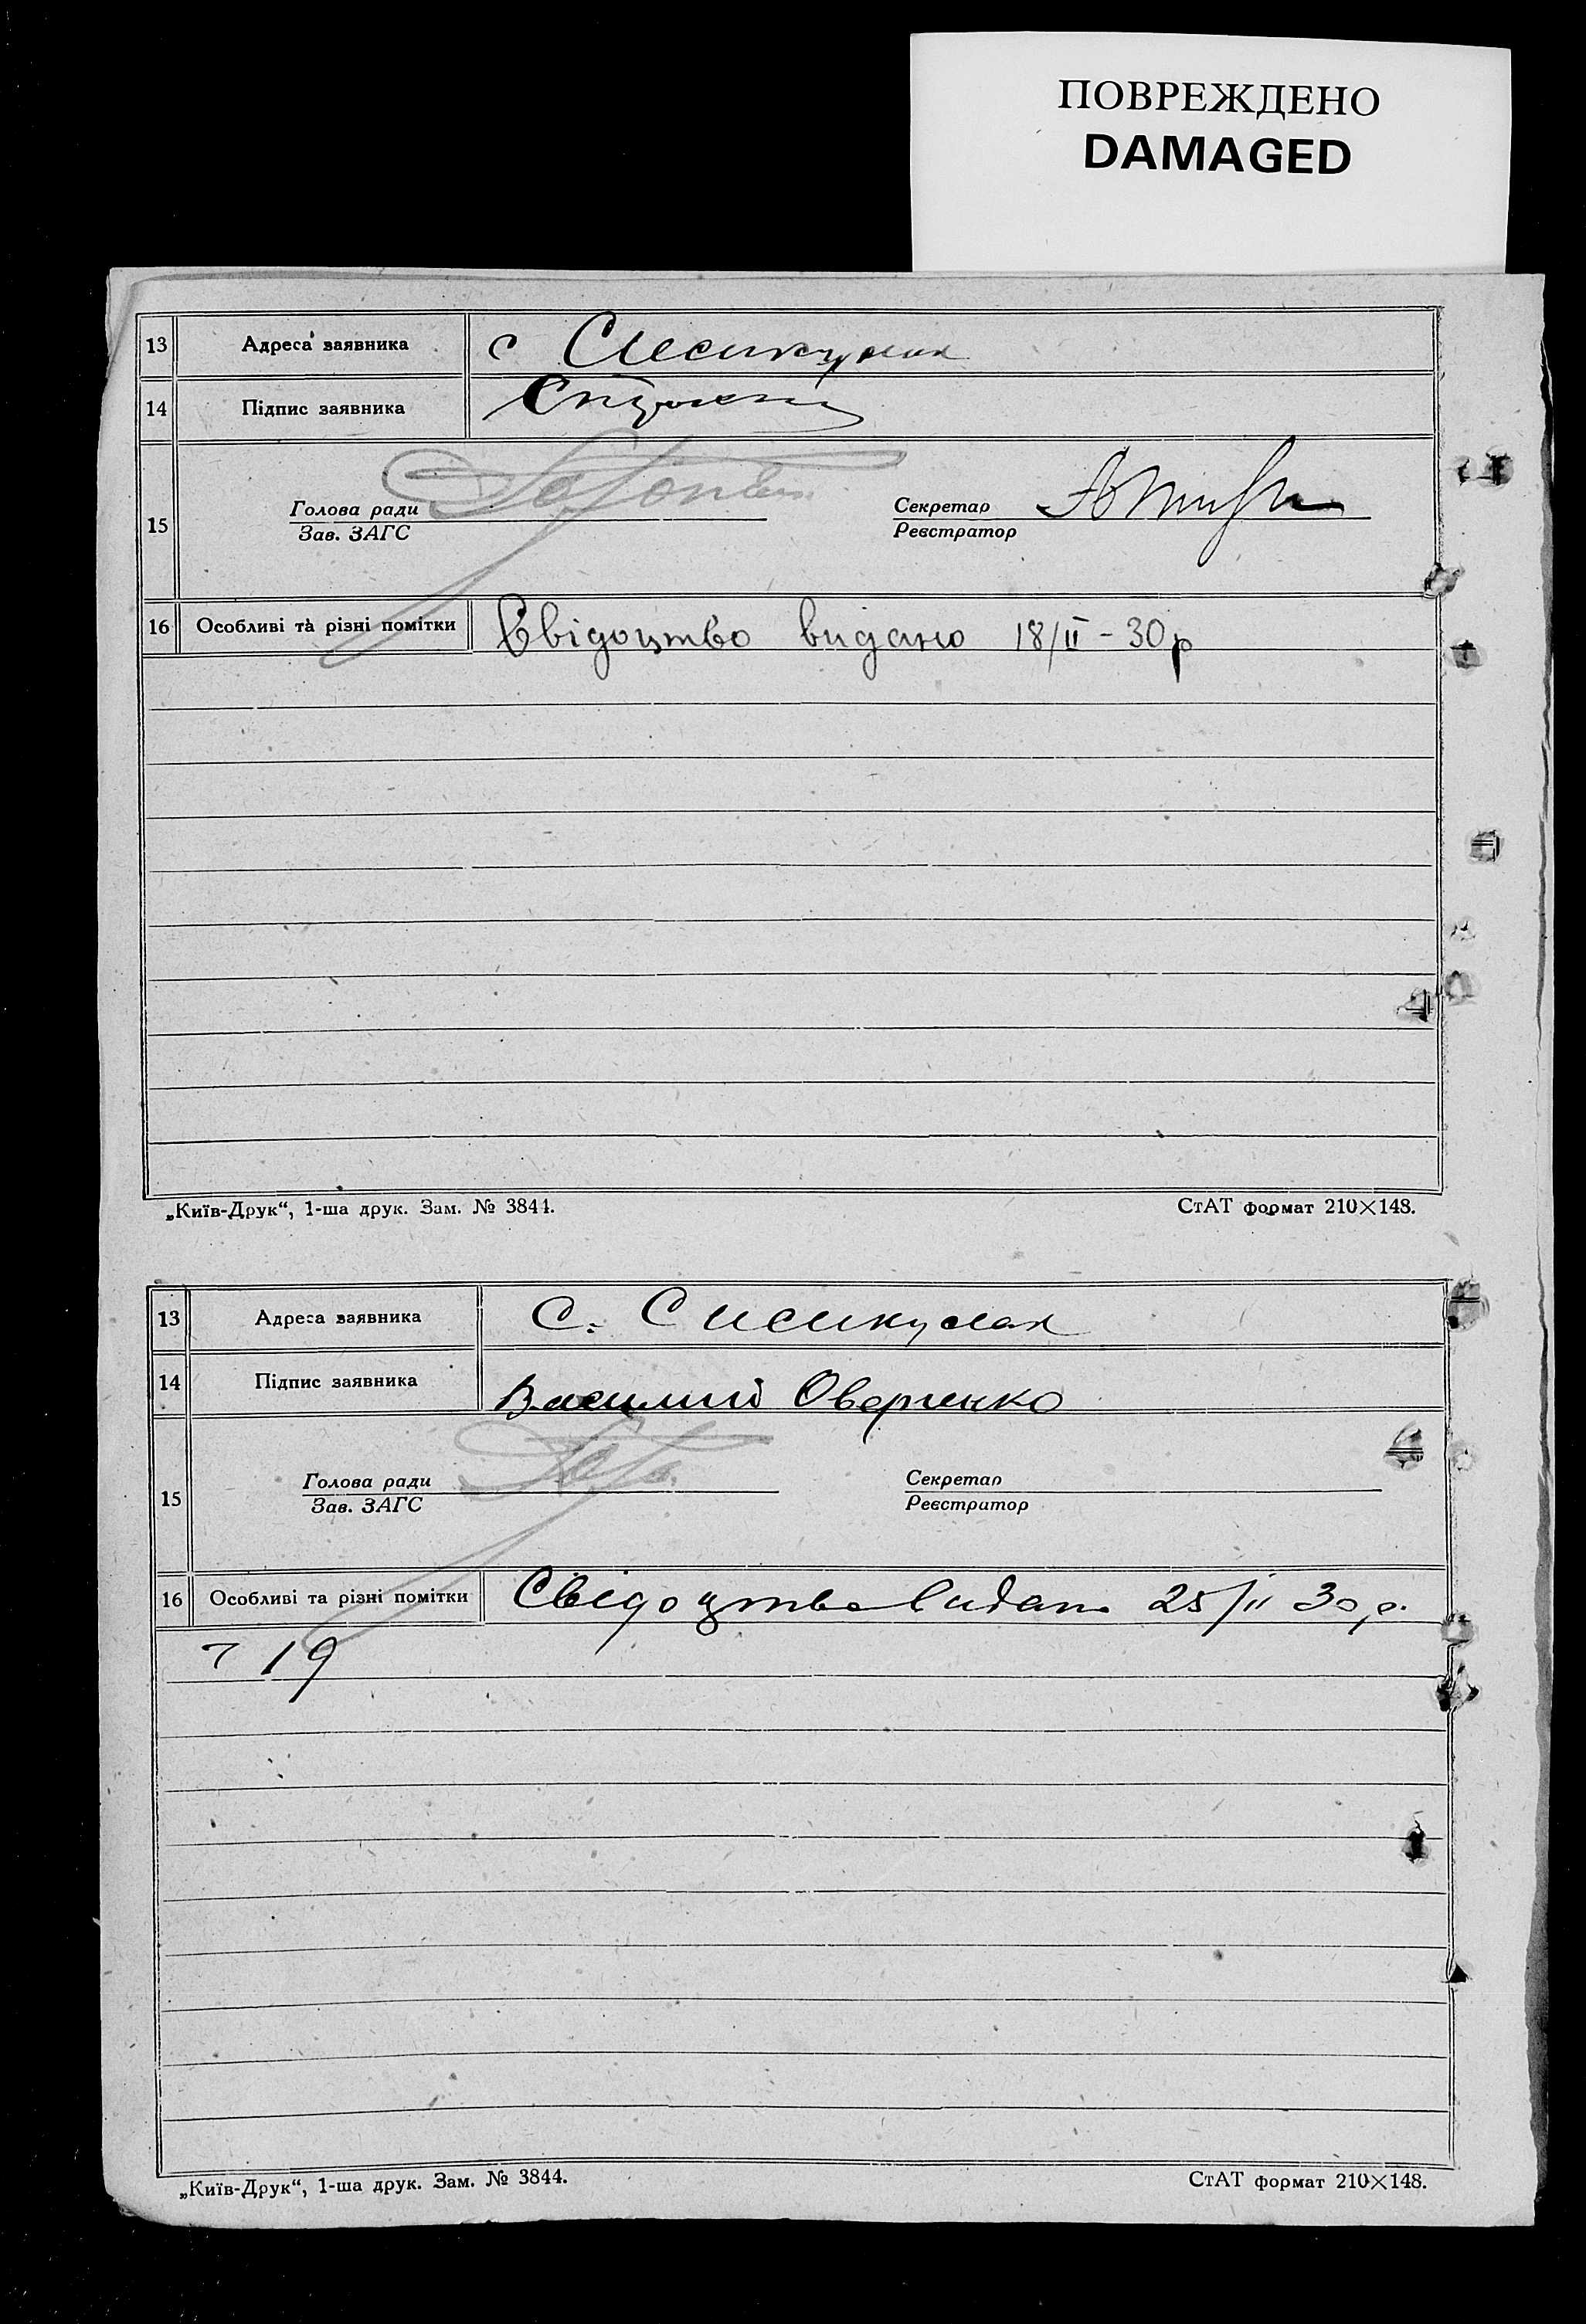 ПОВРЕЖДЕНО
DAMAGED
13 Адреса заявника с
14 Підпис заявника
Голова ради Секретар
15
Зав. ЗАГС Реєстратор
16 Особливі та різні помітки Свідоцтво видано 18/II - 30р
„Київ-Друк“, 1-ша друк. Зам. № 3844. СтАТ формат 210×148.
13 Адреса заявника с.
14 Підпис заявника Василий Оверченко
Голова ради Секретар
15
Зав. ЗАГС Реєстратор
16 Особливі та різні помітки Свідоцтво видано 25/II 30р.
19
„Київ-Друк“, 1-ша друк. Зам. № 3844. СтАТ формат 210×148.